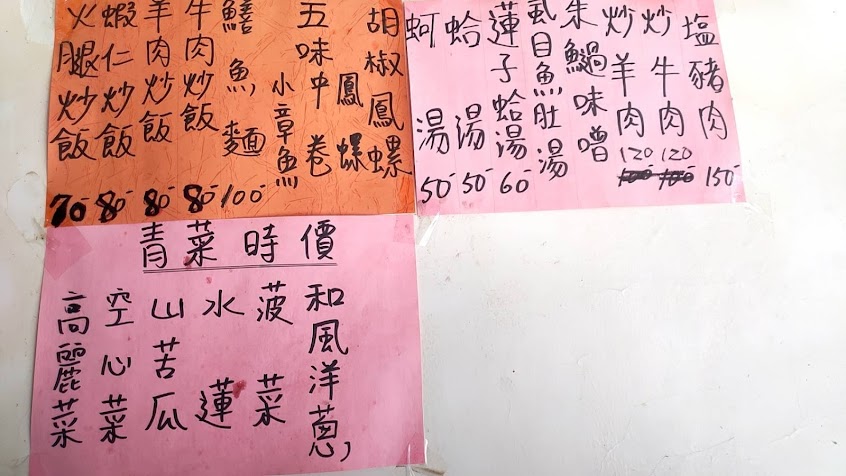 塩豬肉 150-
炒牛肉 120
炒羊肉 120
味噌
虱目魚肚湯
蓮子蛤湯 60-
蛤湯 50-
蚵湯 50-
胡椒鳳螺
鳳螺
五味中卷
小章魚
鱔魚麵 100-
牛肉炒飯 80-
羊肉炒飯 80-
蝦仁炒飯 80-
火腿炒飯 70-
青菜時價
和風洋蔥,
菠菜
水蓮
山苦瓜
空心菜
高麗菜